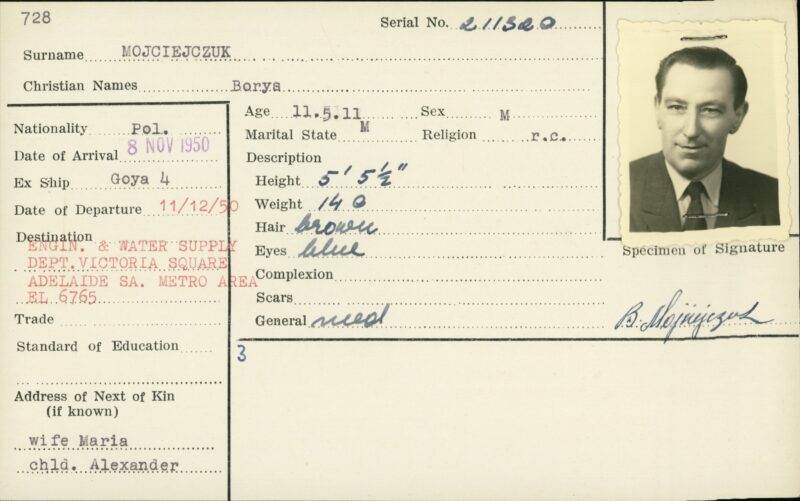 728
Serial No. 211320
Surname MOJCIEJCZUK
Christian Names Borys
Age 11.5.11 Sex M
Marital State M Religion r.c.
Nationality Pol.
Date of Arrival 8 NOV 1950
Ex Ship Goya 4
Date of Departure 11/12/50
Destination
ENGIN. & WATER SUPPLY
DEPT.VICTORIA SQUARE
ADELAIDE SA. METRO AREA
EL 6765
Trade
Standard of Education
Address of Next of Kin
(if known)
wife Maria
chld. Alexander
Description
Height 5' 5½"
Weight 140
Hair brown
Eyes blue
Complexion
Scars
General med
3
Specimen of Signature
B.